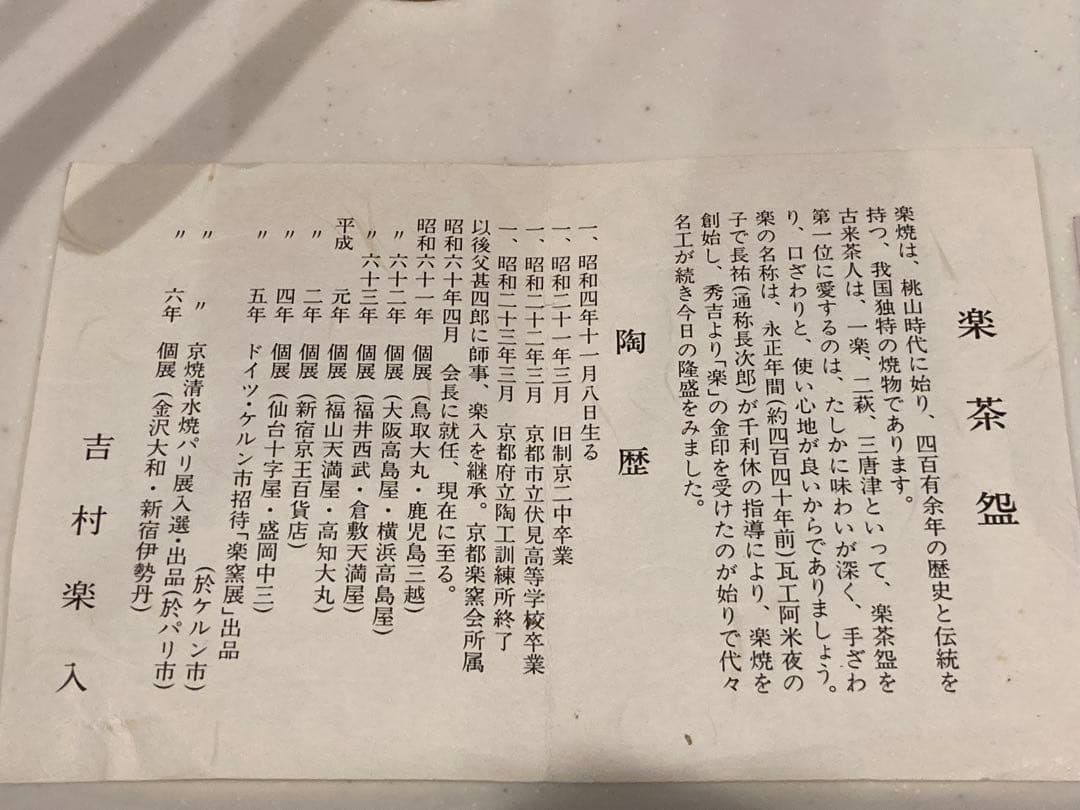 楽茶盌
楽焼は、桃山時代に始り、四百有余年の歴史と伝統を
持つ、我国独特の焼物であります。
古来茶人は、一楽、二萩、三唐津といって、楽茶盌を
第一位に愛するのは、たしかに味わいが深く、手ざわ
り、口ざわりと、使い心地が良いからでありましょう。
楽の名称は、永正年間(約四百四十年前)瓦工阿米夜の
子で長祐(通称長次郎)が千利休の指導により、楽焼を
創始し、秀吉より「楽」の金印を受けたのが始りで代々
名工が続き今日の隆盛をみました。
陶歴
一、昭和四年十一月八日生る
一、昭和二十一年三月　旧制京二中卒業
一、昭和二十二年三月　京都市立伏見高等学校卒業
一、昭和二十三年三月　京都府立陶工訓練所終了
以後父甚四郎に師事、楽入を継承。京都楽窯会所属
昭和六十年四月　会長に就任、現在に至る。
昭和六十一年　個展(鳥取大丸・鹿児島三越)
〃六十二年　個展(大阪高島屋・横浜高島屋)
〃六十三年　個展(福井西武・倉敷天満屋)
平成　元年　個展(福山天満屋・高知大丸)
〃　二年　個展(新宿京王百貨店)
〃　四年　個展(仙台十字屋・盛岡中三)
〃　五年　ドイツ・ケルン市招待「楽窯展」出品
(於ケルン市)
〃　〃　京焼清水焼パリ展入選・出品(於パリ市)
〃　六年　個展(金沢大和・新宿伊勢丹)
吉村楽入